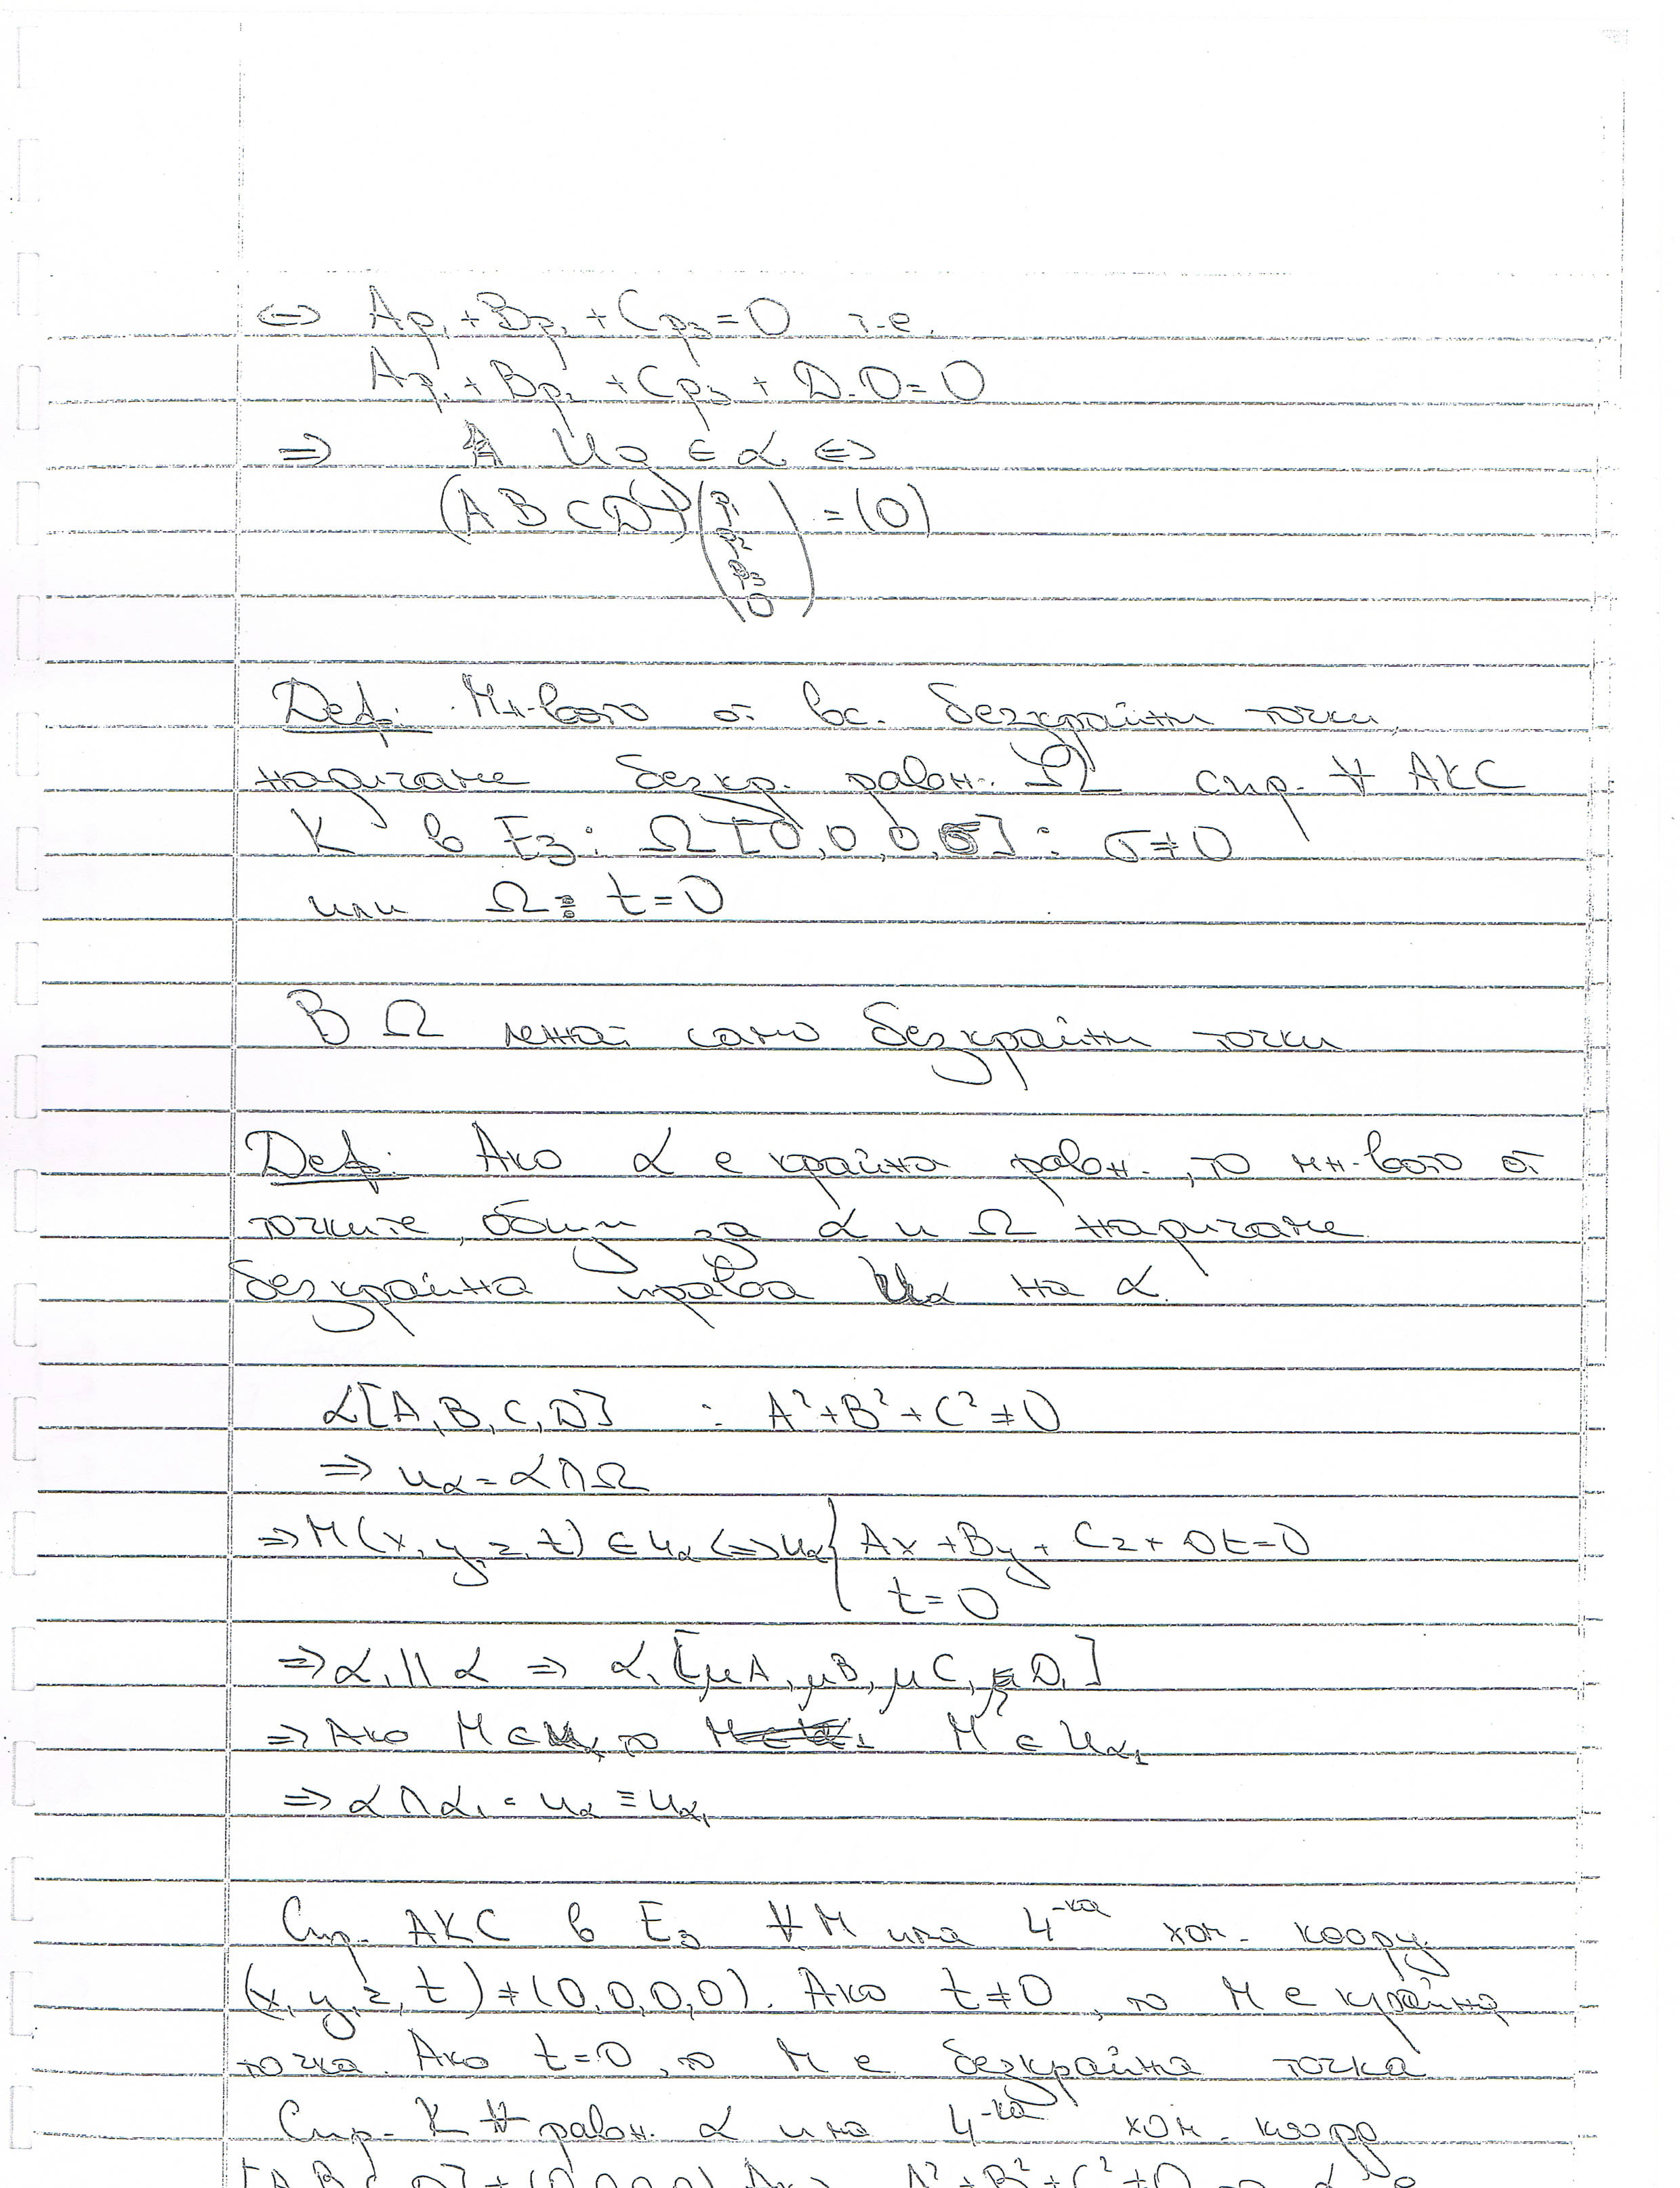 ⇔ Ap₁ + Bp₁ + Cp₃ = 0 т.е.
Ap₁ + Bp₂ + Cp₃ + D.0 = 0
⇒ U_g ∈ α ⇔
(A B C D) (p₁ p₂ p₃ 0) = (0)
Деф: Мн-вото от вс. безкрайни точки
наричаме безкр. равн. Ω спр. ∀ АКС
K в E₃: Ω [0, 0, 0, σ] : σ ≠ 0
или Ω: t = 0
В Ω лежат само безкрайни точки
Деф: Ако α е крайна равн., то мн-вото от
точките, общи за α и Ω наричаме
безкрайна права u_α на α.
α[A, B, C, D] : A² + B² + C² ≠ 0
⇒ u_α = α ∩ Ω
⇒ M(x, y, z, t) ∈ u_α ⇔ u_α { Ax + By + Cz + Dt = 0
t = 0
⇒ α₁ || α ⇒ α₁ [μA, μB, μC, D₁]
⇒ Ако M ∈ u_α то M ∈ u_α₁
⇒ α ∩ α₁ = u_α ≡ u_α₁
Спр. АКС в E₃ ∀ M има 4-ка хом. коорд
(x, y, z, t) ≠ (0, 0, 0, 0). Ако t ≠ 0, то M е крайна
точка. Ако t = 0, то M е безкрайна точка
Спр. K ∀ равн. α има 4-ка хом. коорд
[A B C D] ≠ (0,0,0,0) Ако A² + B² + C² ≠ 0 то α е